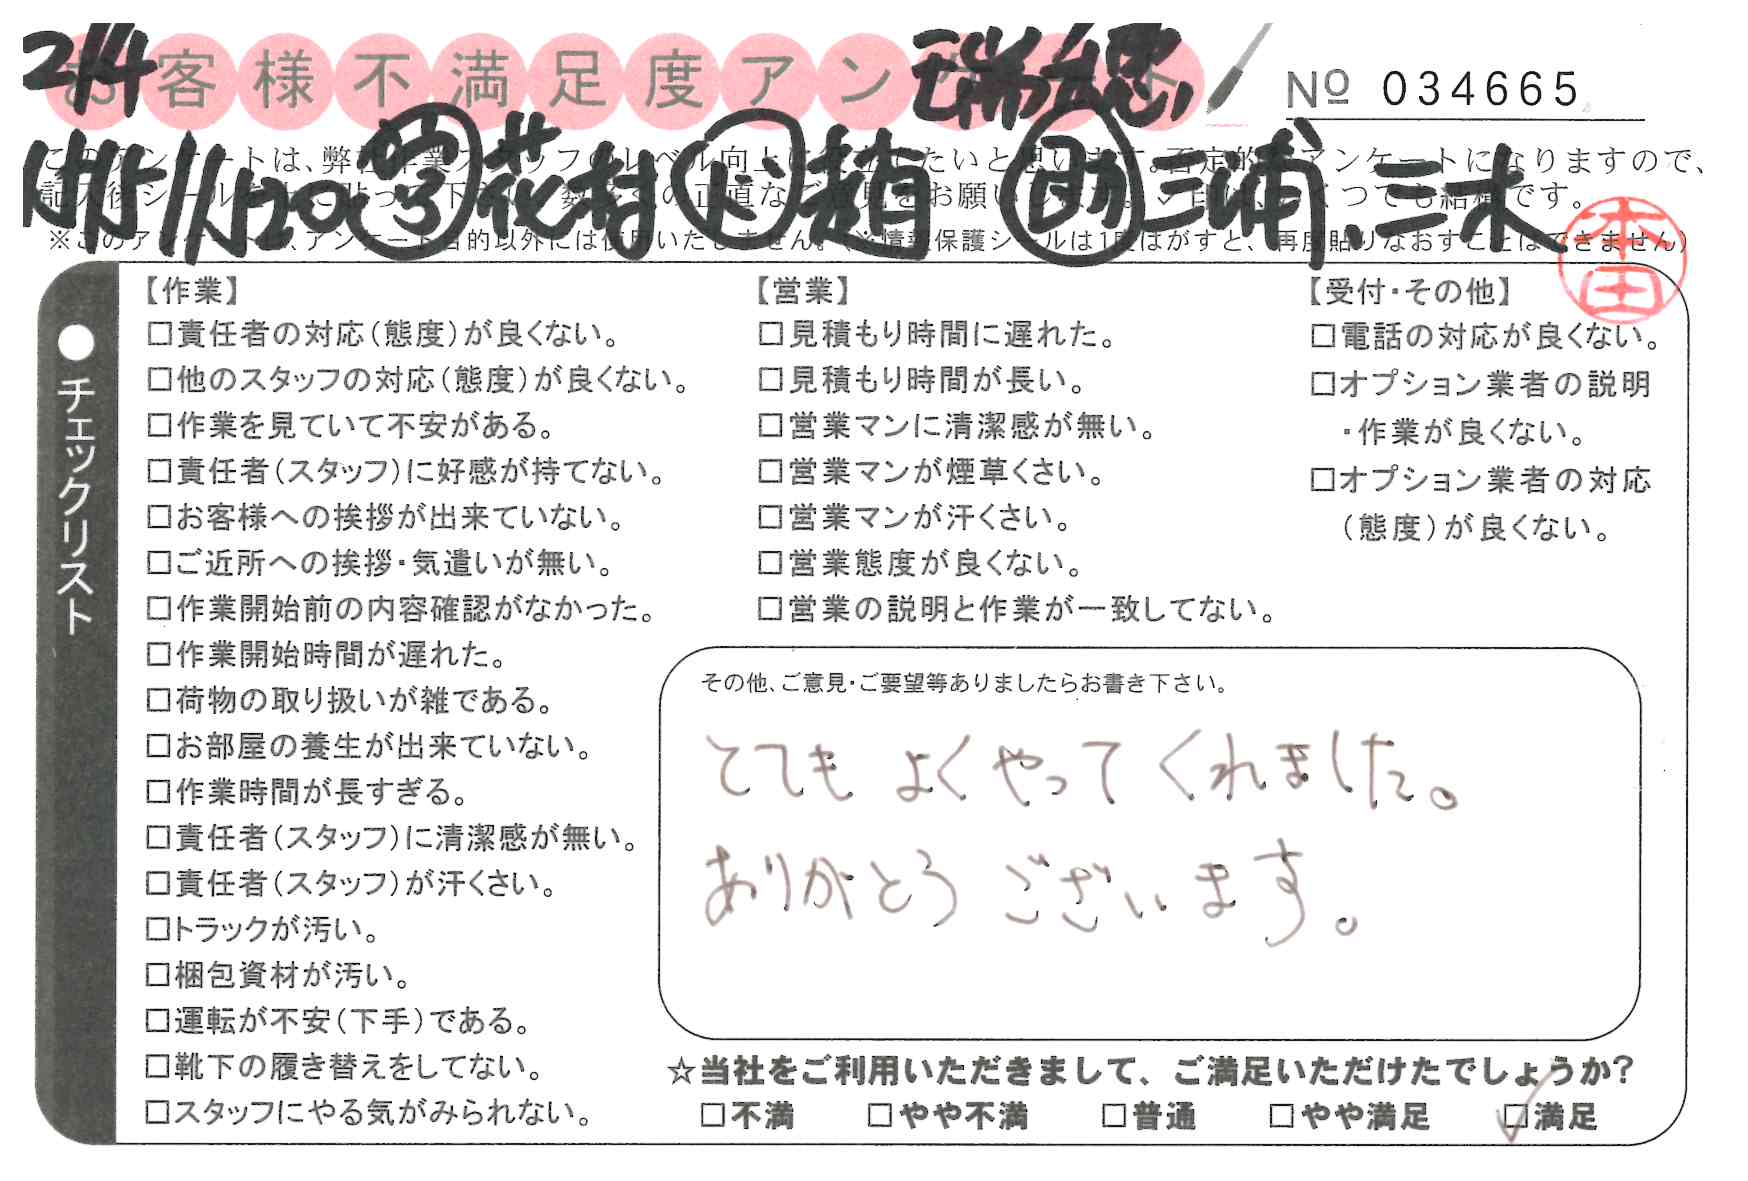 2/4 お客様不満足度アンケート
№ 034665
このアンケートは、弊社作業スタッフのレベル向上に役立てたいと思います。否定的なアンケートになりますので、
花村 ド 趙 助 三浦、三木
※このアンケートは、アンケート目的以外には使用いたしません。(※情報保護シールは1度はがすと、再度貼りなおすことはできません)
本田
●チェックリスト
【作業】
□責任者の対応(態度)が良くない。
□他のスタッフの対応(態度)が良くない。
□作業を見ていて不安がある。
□責任者(スタッフ)に好感が持てない。
□お客様への挨拶が出来ていない。
□ご近所への挨拶・気遣いが無い。
□作業開始前の内容確認がなかった。
□作業開始時間が遅れた。
□荷物の取り扱いが雑である。
□お部屋の養生が出来ていない。
□作業時間が長すぎる。
□責任者(スタッフ)に清潔感が無い。
□責任者(スタッフ)が汗くさい。
□トラックが汚い。
□梱包資材が汚い。
□運転が不安(下手)である。
□靴下の履き替えをしてない。
□スタッフにやる気がみられない。
【営業】
□見積もり時間に遅れた。
□見積もり時間が長い。
□営業マンに清潔感が無い。
□営業マンが煙草くさい。
□営業マンが汗くさい。
□営業態度が良くない。
□営業の説明と作業が一致してない。
【受付・その他】
□電話の対応が良くない。
□オプション業者の説明
・作業が良くない。
□オプション業者の対応
(態度)が良くない。
その他、ご意見・ご要望等ありましたらお書き下さい。
とても よくやって くれました。
ありがとう ございます。
☆当社をご利用いただきまして、ご満足いただけたでしょうか?
□不満 □やや不満 □普通 □やや満足 ☑満足